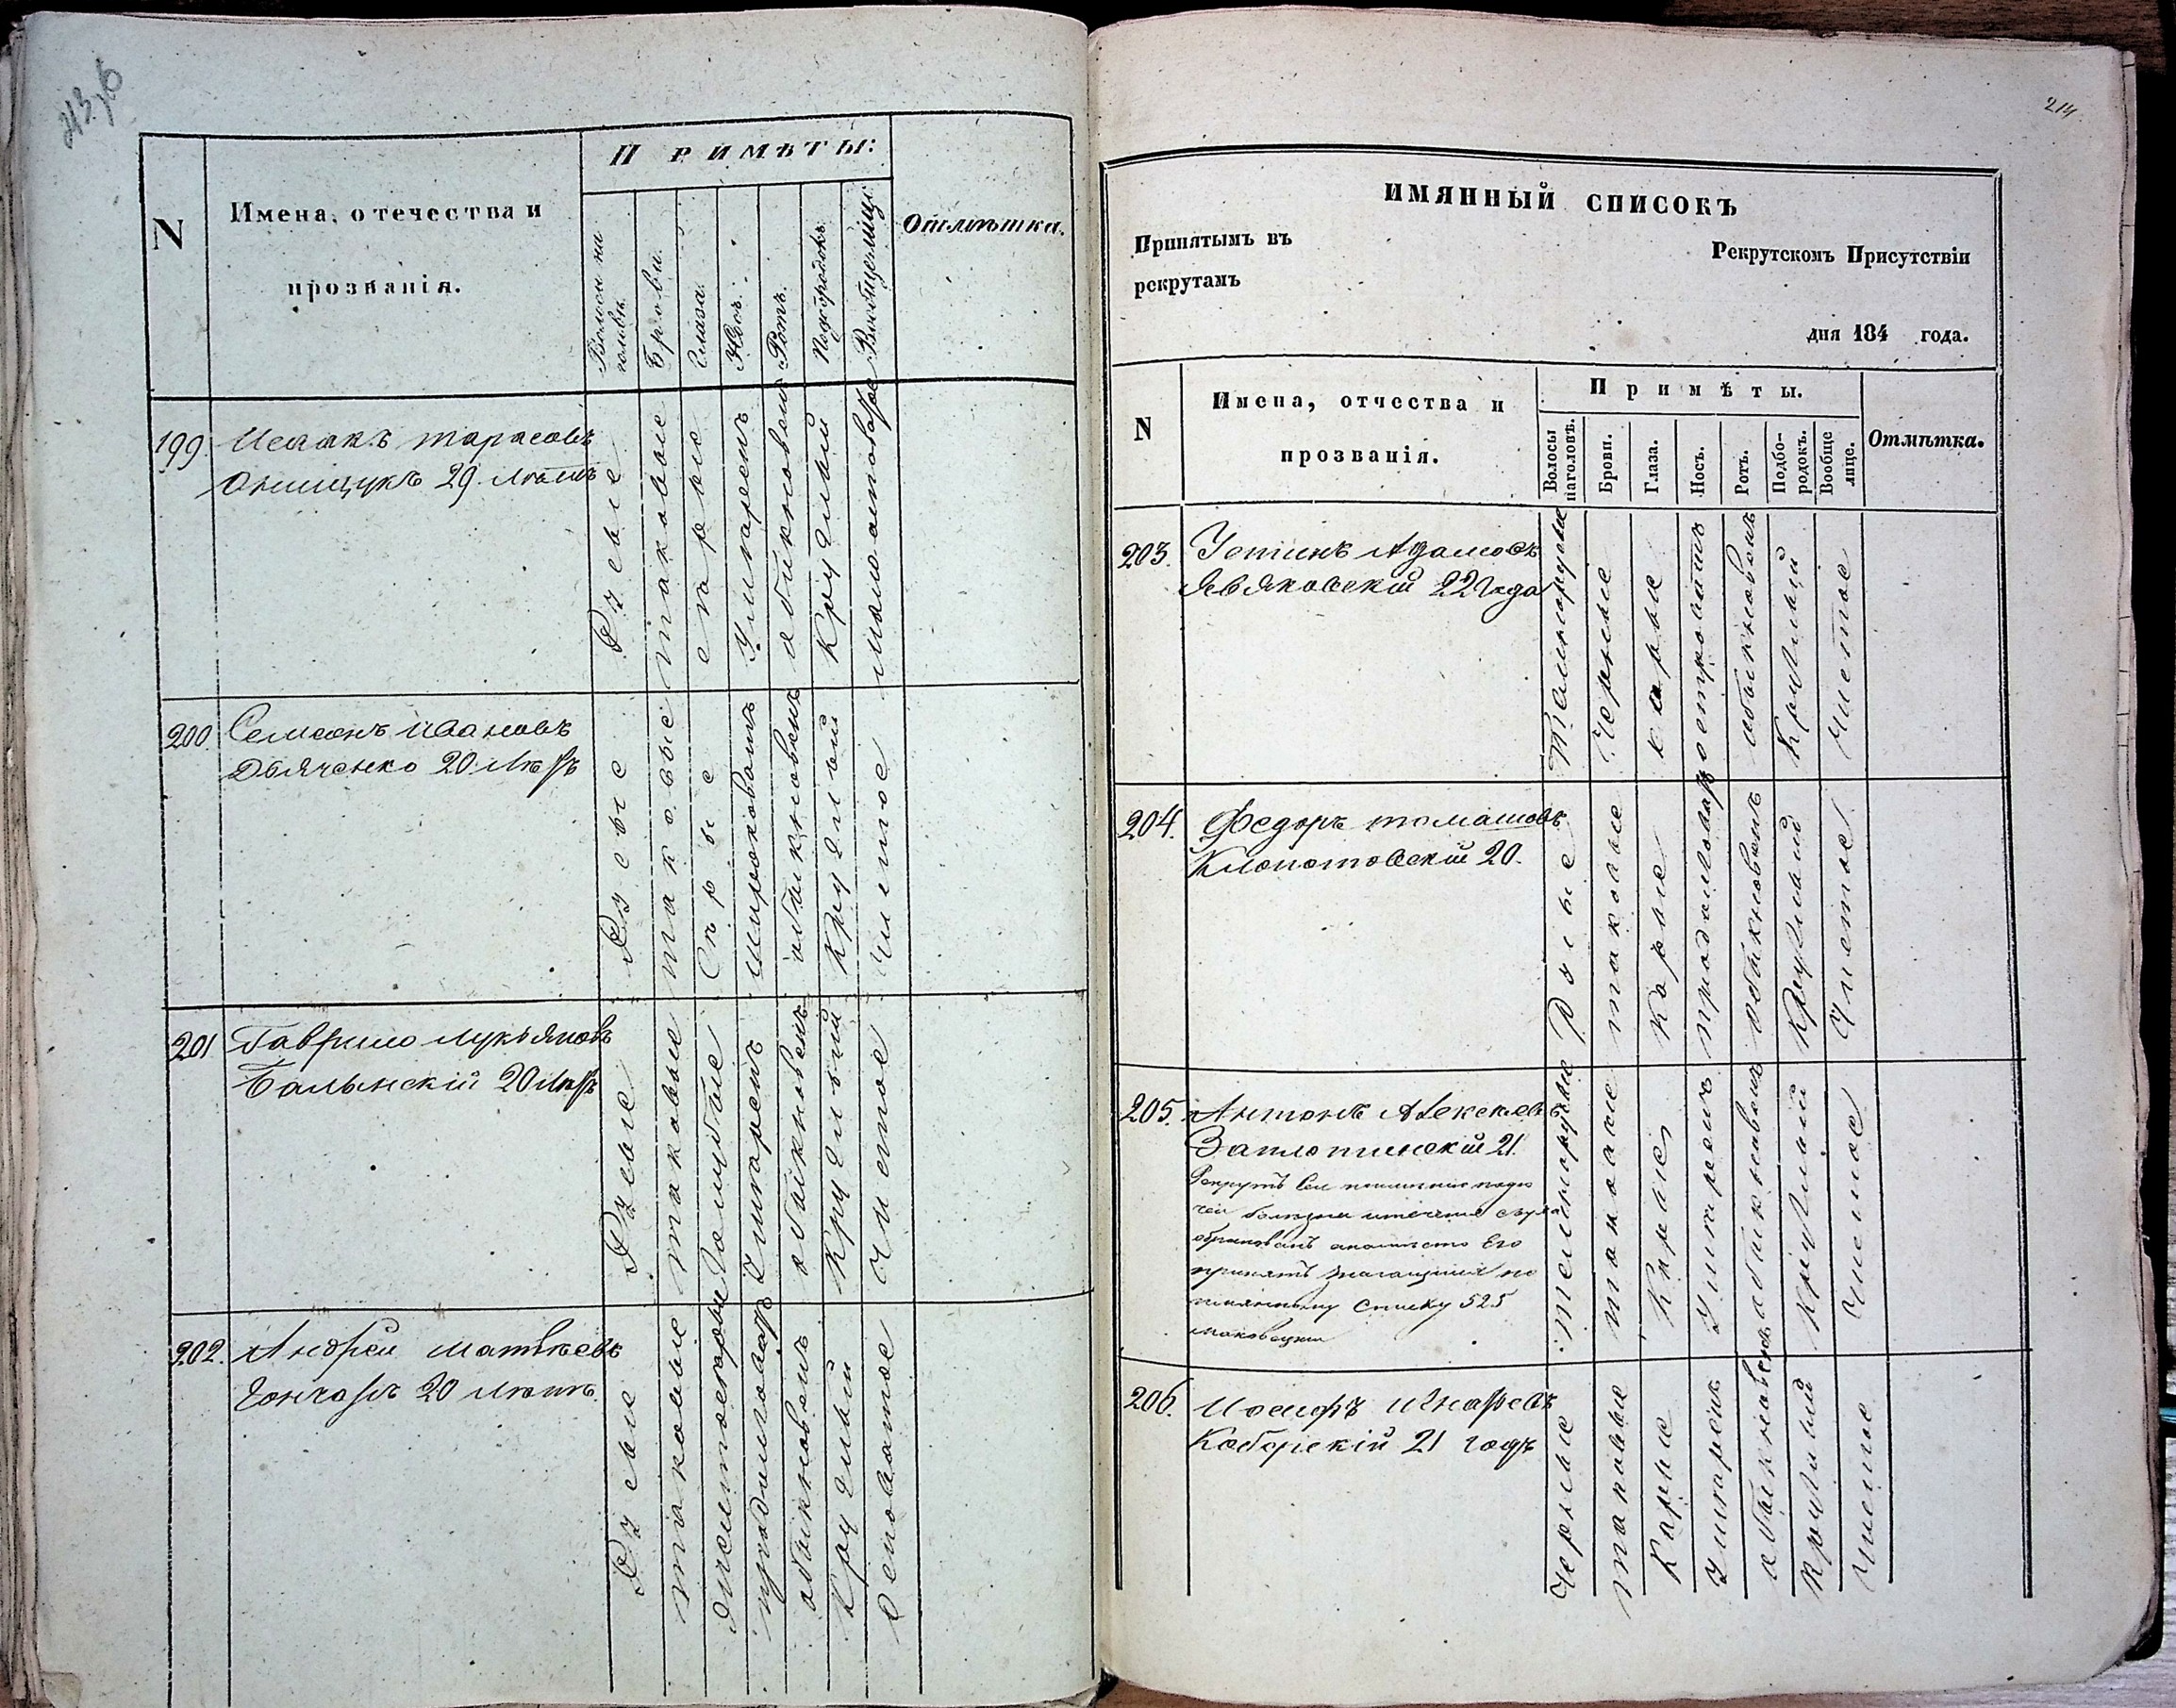 N
Имена, отечества и
прозванія.
ПРИМѢТЫ:
Волосы на
головѣ.
Брови.
Глаза.
Носъ.
Ротъ.
Подбородокъ.
Вообще лице.
Отмѣтка.
199.
Исаакъ Тарасовъ
Онищукъ 29. лѣтъ
Русые
таковые
сѣрые
Умѣренъ
обыкновенъ
Круглый
200
Семенъ Ивановъ
Дьяченко 20 лѣтъ
Русые
таковые
Сѣрые
широковатъ
обыкновенъ
Круглый
Чистое
201
Гаврило Лукьяновъ
20 лѣтъ
Русые
таковые
Голубые
Умѣренъ
обыкновенъ
Круглый
чистое
202.
Андрей Матвѣевъ
Гончаръ 20 лѣтъ
Русые
таковые
обыкновенъ
Круглый
214
ИМЯННЫЙ СПИСОКЪ
Принятымъ въ
Рекрутскомъ Присутствіи
рекрутамъ
дня 184 года.
N
Имена, отчества и
прозванія.
Примѣты.
Волосы
наголовѣ.
Брови.
Глаза.
Носъ.
Ротъ.
Подбо-
родокъ.
Вообще
лице.
Отмѣтка.
203.
Устинъ Адамовъ
22 года
Темнорусые
Черные
карые
островатъ
обыкновенъ
Круглый
Чистое
204.
Федоръ Томашовъ
Клопотовскій 20.
Русые
таковые
Карые
обыкновенъ
Круглый
Чистое
205.
Антонъ Алексѣевъ
21.
Рекрутъ
Его
принятъ
списку 525
Темнорусые
таковые
Карые
Умѣренъ
обыкновенъ
Круглый
Чистое
206.
Іосифъ
21 годъ
Черные
таковые
Карые
Умѣренъ
обыкновенъ
Круглый
Чистое